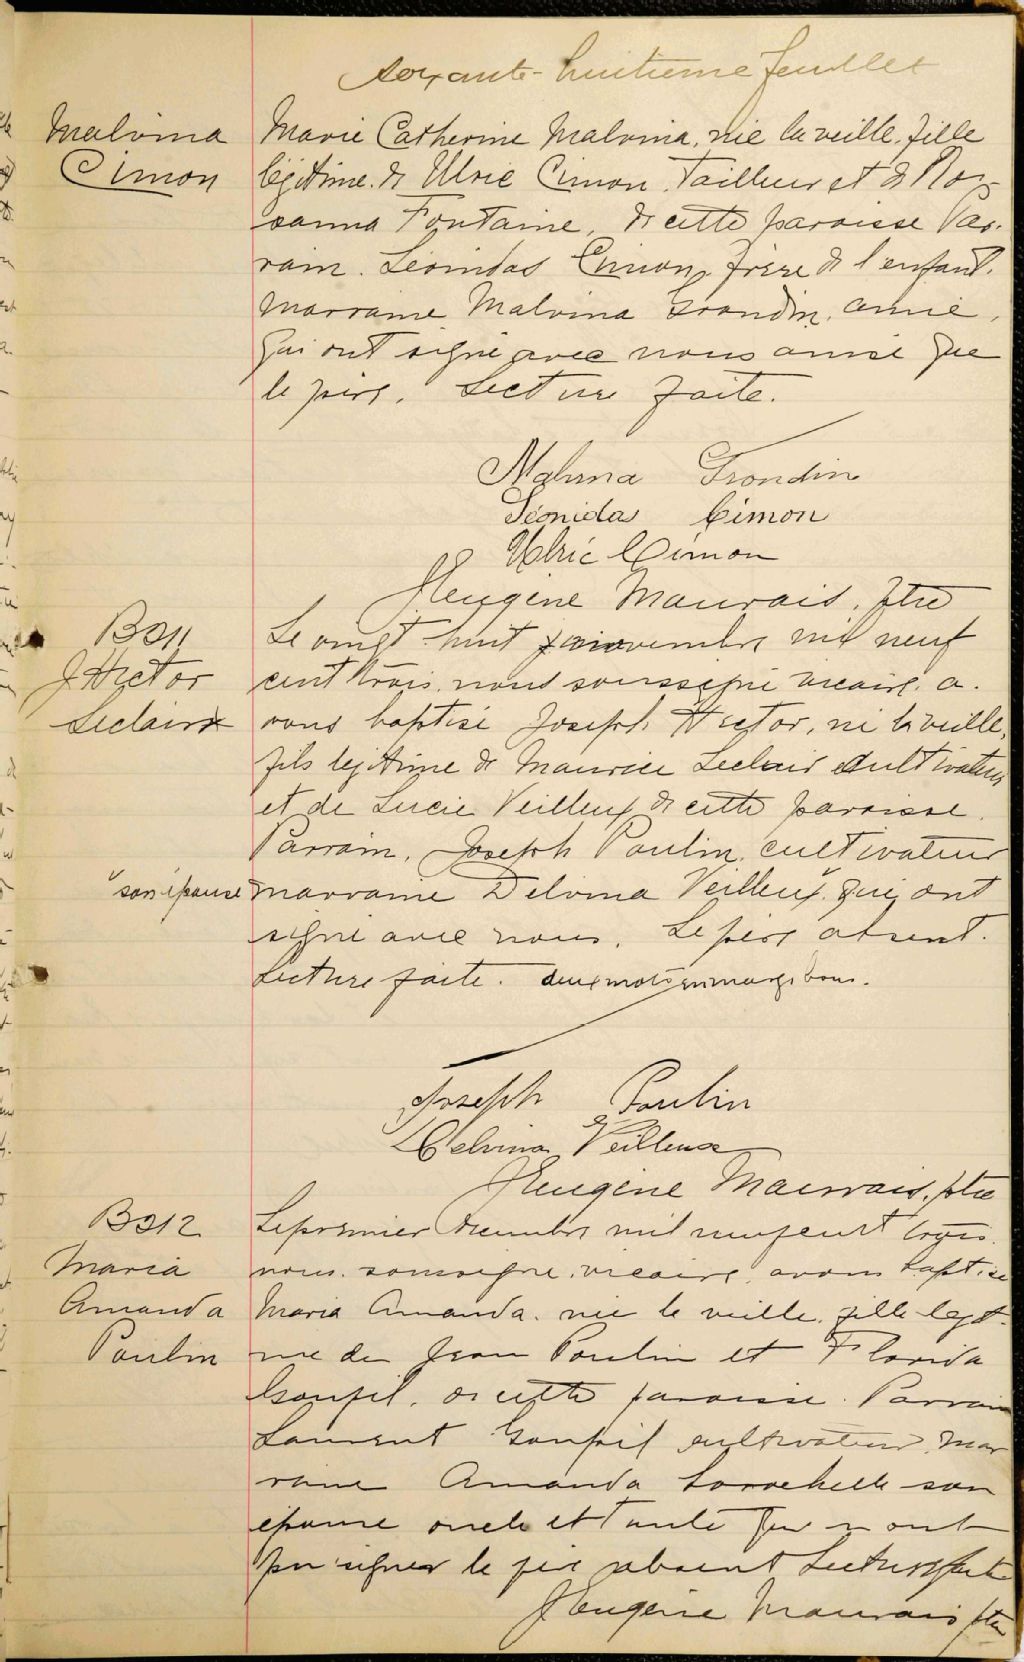 soixante-huitieme feuillet
Malvina
Cimon
Marie Catherine Malvina, née la veille, fille
légitime de Ulric Cimon, Tailleur et de Ro-
sanna Fontaine, de cette paroisse Par-
rain. Léonidas Cimon, frère de l'enfant.
marraine Malvina Grondin, amie,
qui ont signé avec nous ainsi que
le père. Lecture faite.
Malvina Grondin
Léonidas Cimon
Ulric Cimon
J Eugène Mauvais, ptre
B311
J Hector
Leclair
Le vingt-huit novembre mil neuf
cent trois, nous soussigné vicaire, a-
vons baptisé Joseph Hector, né la veille,
fils légitime de Maurice Leclair cultivateur
et de Lucie Veilleux de cette paroisse.
Parrain, Joseph Poulin, cultivateur
"son épouse
marraine Delvina Veilleux qui ont
signé avec nous. Le père absent.
Lecture faite. deux mots en marge bons.
Joseph Poulin
Delvina Veilleux
J Eugène Mauvais, ptre
B312
Maria
Amanda
Poulin
Le premier decembre mil neuf cent trois,
nous, soussigné, vicaire, avons baptisé
Maria Amanda, née la veille, fille légiti-
me de Jean Poulin et Florida
Goupil, de cette paroisse. Parrain
Laurent Goupil cultivateur, mar
raine Amanda Larochelle son
épouse oncle et tante qui n ont
pu signer le père absent Lecture faite
J Eugène Mauvais ptre